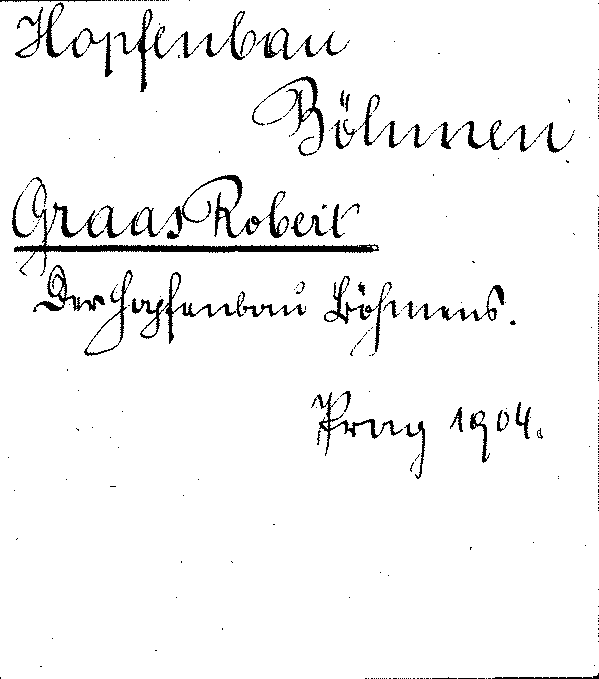 Hopfenbau
Böhmen
Graas Robert
Der Hopfenbau Böhmens.
Prag 1904.